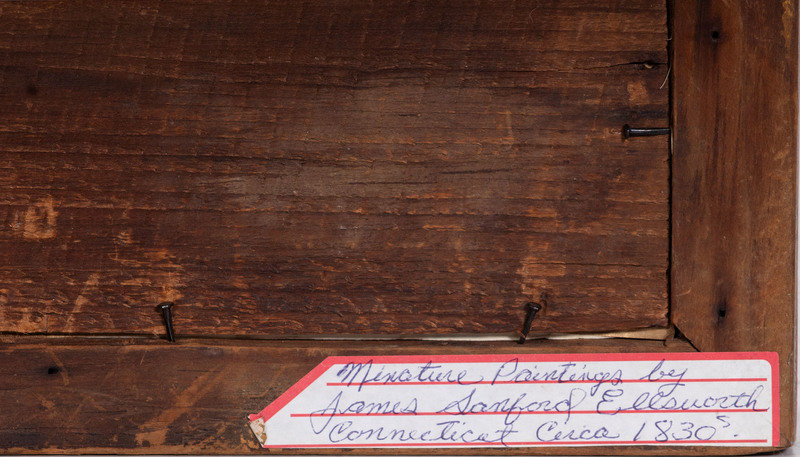 Minature Paintings by
James Sanford Ellsworth
Connecticut Circa 1830s.